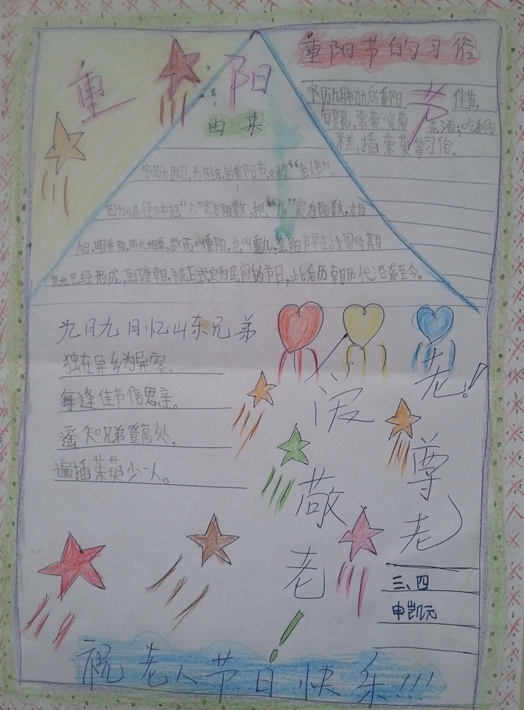 重阳
由来
农历九月九日,为传统的重阳节,又称“老人节”。
因为《易经》中把“六”定为阴数,把“九”定为阳数,九月
九日,日月并阳,两九相重,故而叫重阳,也叫重九,重阳节早在战国时期
就已经形成,到了唐朝,被正式定为民间的节日,此后历朝历代沿袭至今。
重阳节的习俗
农历九月初九的重阳节佳节,
有赏菊,喝菊花酒,吃重阳
糕,插茱萸等习俗。
九月九日忆山东兄弟
独在异乡为异客,
每逢佳节倍思亲。
遥知兄弟登高处,
遍插茱萸少一人。
爱老!
尊老
敬老!
三、四
申凯元
祝老人节日快乐!!!